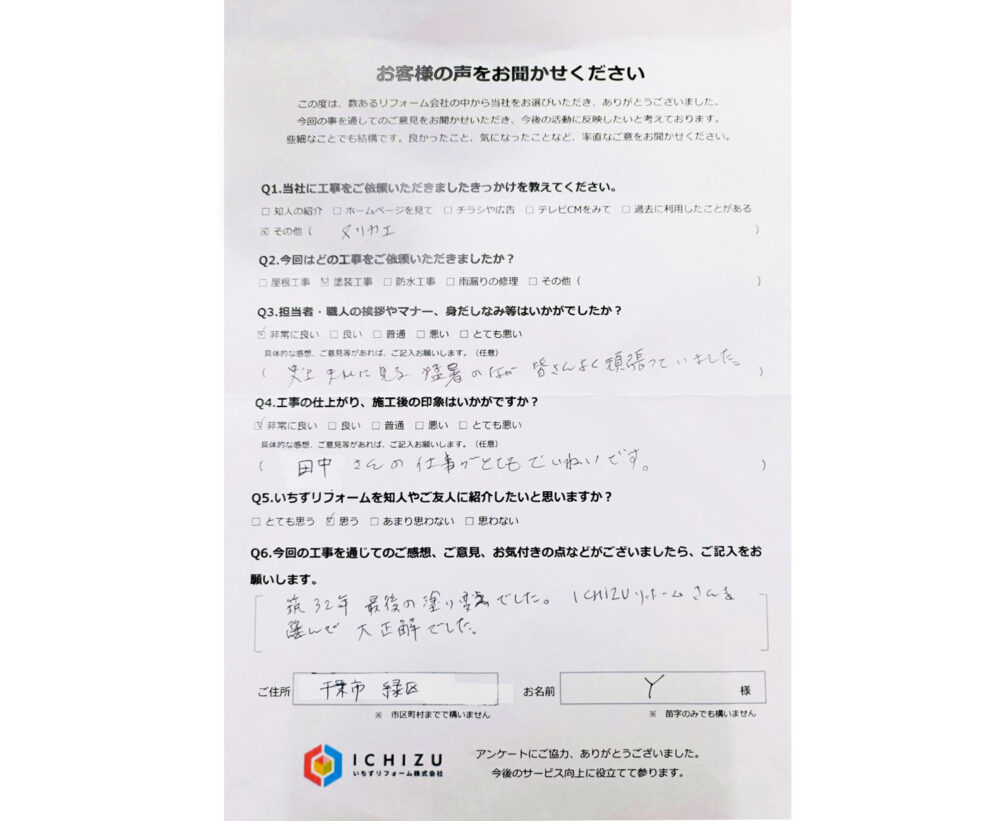 お客様の声をお聞かせください
この度は、数あるリフォーム会社の中から当社をお選びいただき、ありがとうございました。
今回の事を通してのご意見をお聞かせいただき、今後の活動に反映したいと考えております。
些細なことでも結構です。良かったこと、気になったことなど、率直なご意をお聞かせください。
Q1.当社に工事をご依頼いただきましたきっかけを教えてください。
□ 知人の紹介 □ ホームページを見て □ チラシや広告 □ テレビCMをみて □ 過去に利用したことがある
☑ その他 ( ヌリカエ )
Q2.今回はどの工事をご依頼いただきましたか？
□ 屋根工事 ☑ 塗装工事 □ 防水工事 □ 雨漏りの修理 □ その他 ( )
Q3.担当者・職人の挨拶やマナー、身だしなみ等はいかがでしたか？
☑ 非常に良い □ 良い □ 普通 □ 悪い □ とても悪い
具体的な感想、ご意見等があれば、ご記入お願いします。(任意)
( 史上まれに見る猛暑のなか 皆さんよく頑張っていました。 )
Q4.工事の仕上がり、施工後の印象はいかがですか？
☑ 非常に良い □ 良い □ 普通 □ 悪い □ とても悪い
具体的な感想、ご意見等があれば、ご記入お願いします。(任意)
( 田中 さんの仕事がとてもていねいです。 )
Q5.いちずリフォームを知人やご友人に紹介したいと思いますか？
□ とても思う ☑ 思う □ あまり思わない □ 思わない
Q6.今回の工事を通じてのご感想、ご意見、お気付きの点などがございましたら、ご記入をお
願いします。
築32年 最後の塗り替えでした。 ICHIZUリホームさんを
選んで 大正解でした。
ご住所 千葉市 緑区 お名前 Y 様
※ 市区町村までで構いません ※ 苗字のみでも構いません
ICHIZU
いちずリフォーム株式会社
アンケートにご協力、ありがとうございました。
今後のサービス向上に役立てて参ります。